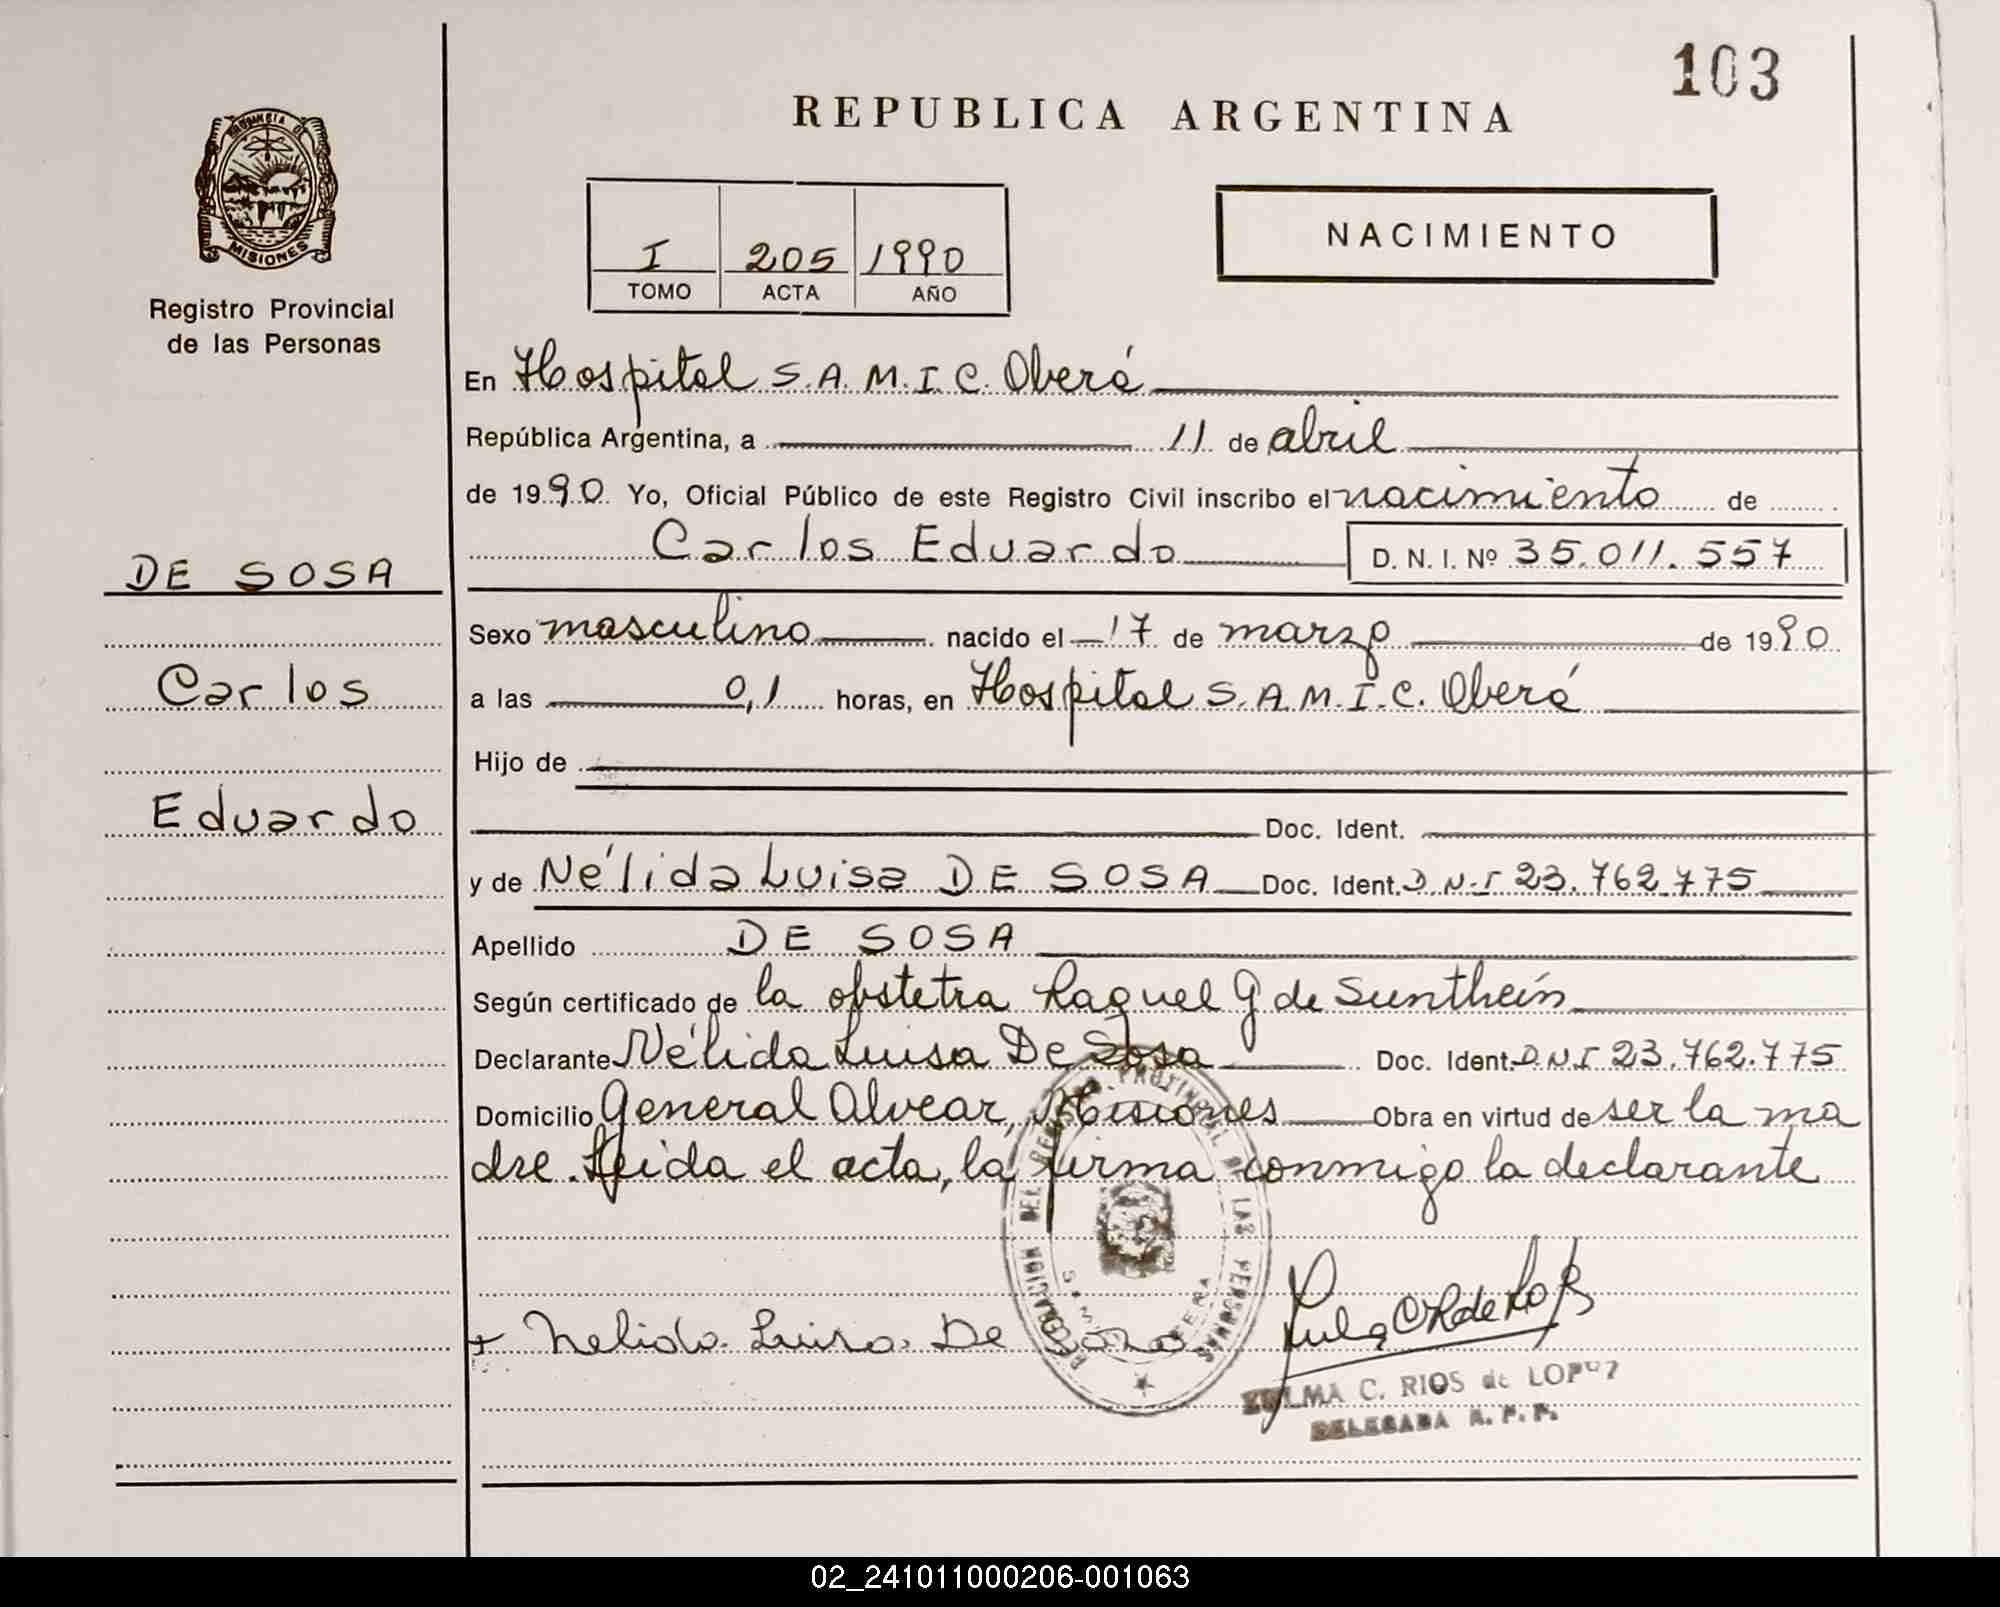 103
REPUBLICA ARGENTINA
PROVINCIA DE
MISIONES
Registro Provincial
de las Personas
I 205 1990
TOMO ACTA AÑO
NACIMIENTO
En Hospital S.A.M.I.C. Oberá
República Argentina, a 11 de abril
de 1990. Yo, Oficial Público de este Registro Civil inscribo el nacimiento de
Carlos Eduardo D. N. I. Nº 35.011.557
DE SOSA
Carlos
Eduardo
Sexo masculino nacido el 17 de marzo de 1990
a las 0,1 horas, en Hospital S.A.M.I.C. Oberá
Hijo de
Doc. Ident.
y de Nélida Luisa DE SOSA Doc. Ident. D.N.I 23.762.775
Apellido DE SOSA
Según certificado de la obstetra Raquel G de Sunthein
Declarante Nélida Luisa De Sosa Doc. Ident. D.N.I 23.762.775
Domicilio General Alvear, Misiones Obra en virtud de ser la ma
dre. Leida el acta, la firma conmigo la declarante
DEL REGISTRO PROVINCIAL DE LAS PERSONAS
+ Nelida Luisa De Sosa
ZULMA C. RIOS de LOPEZ
DELEGADA R. P. P.
02_241011000206-001063